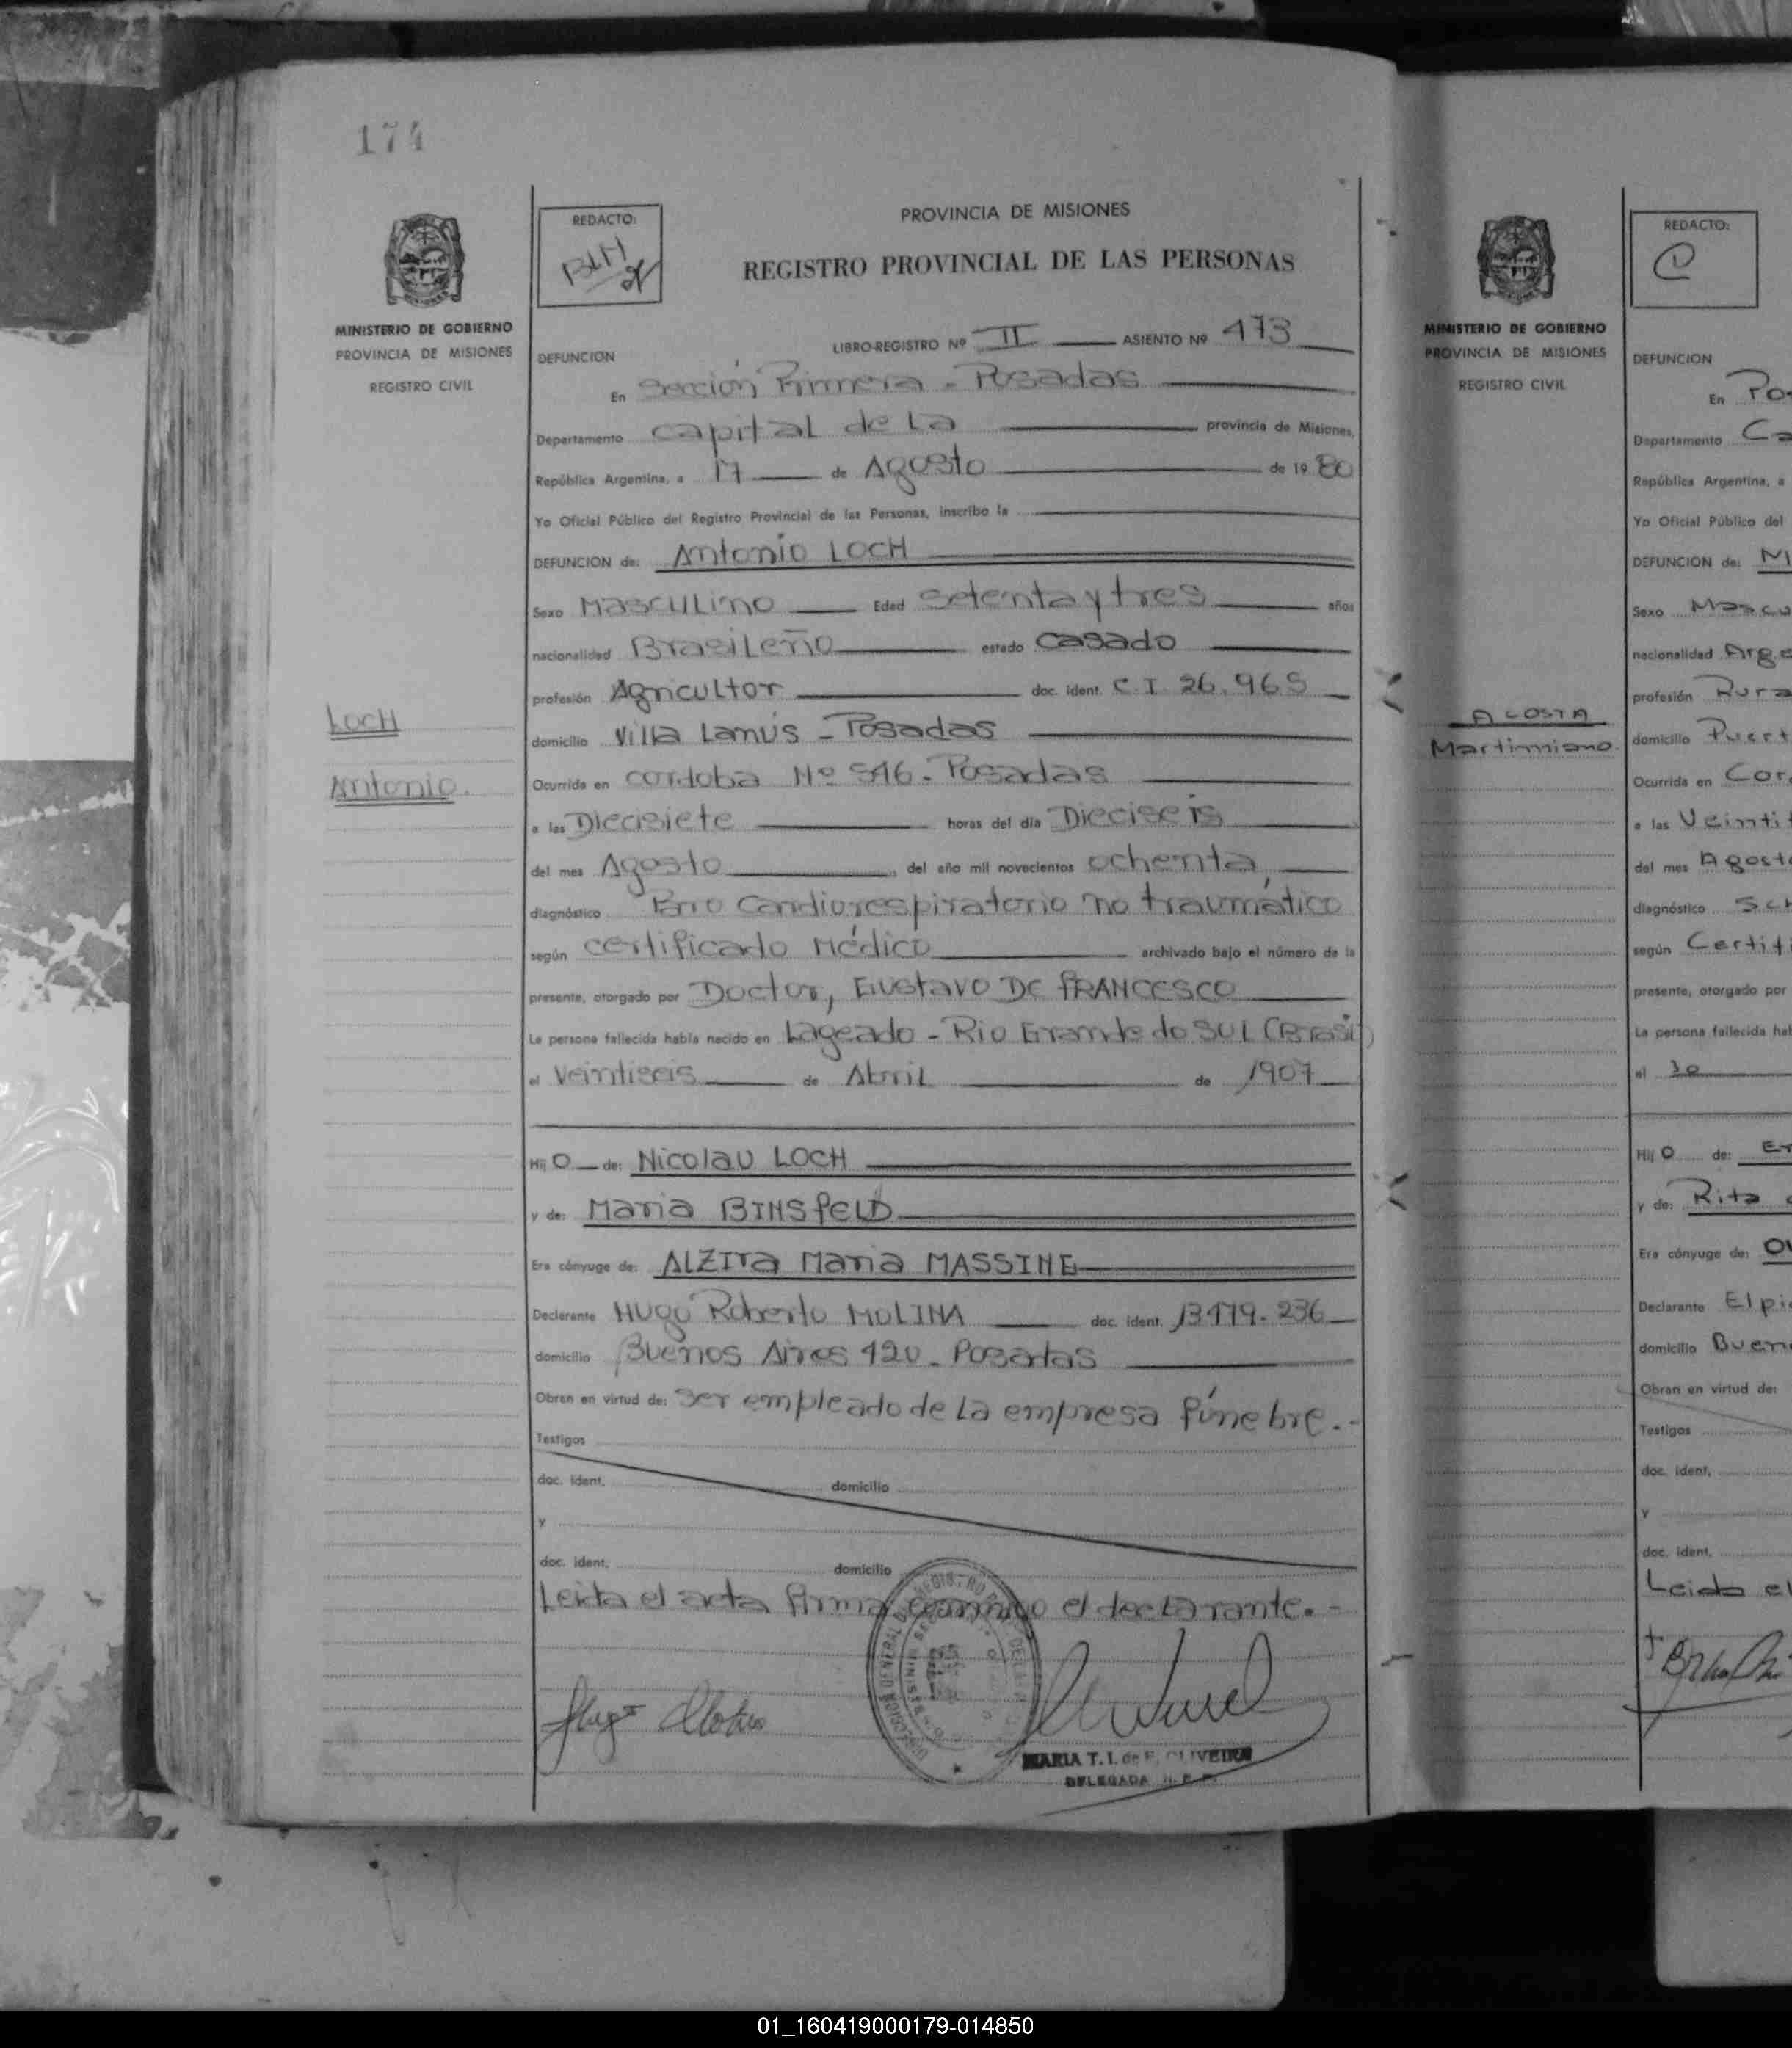 174
MINISTERIO DE GOBIERNO
PROVINCIA DE MISIONES
REGISTRO CIVIL
LOCH
Antonio.
REDACTO:
BLM
PROVINCIA DE MISIONES
REGISTRO PROVINCIAL DE LAS PERSONAS
LIBRO-REGISTRO Nº II ASIENTO Nº 473
DEFUNCION
En Sección Primera - Posadas
Departamento Capital de La provincia de Misiones,
República Argentina, a 17 de Agosto de 19 80
Yo Oficial Público del Registro Provincial de las Personas, inscribo la
DEFUNCION de: Antonio LOCH
Sexo Masculino Edad Setenta y tres años
nacionalidad Brasileño estado Casado
profesión Agricultor doc. ident. C.I. 26.965
domicilio Villa Lanús - Posadas
Ocurrida en Cordoba Nº 546 - Posadas
a las Diecisiete horas del día Dieciseis
del mes Agosto del año mil novecientos ochenta,
diagnóstico Paro Cardiorespiratorio no traumático
según certificado Médico archivado bajo el número de la
presente, otorgado por Doctor, Gustavo DE FRANCESCO
La persona fallecida había nacido en Lageado - Rio Grande do SUL (Brasil)
el Veintiseis de Abril de 1907
Hij O de: Nicolau LOCH
y de: Maria BINSFELD
Era cónyuge de: ALZIRA Maria MASSING
Declarante Hugo Roberto MOLINA doc. ident. 13.479.236
domicilio Buenos Aires 420 - Posadas
Obran en virtud de: Ser empleado de La empresa fúnebre.-
Testigos
doc. ident. domicilio
y
doc. ident. domicilio
Leida el acta firma conmigo el declarante.-
MARIA T. I. de F. OLIVEIRA
DELEGADA
MINISTERIO DE GOBIERNO
PROVINCIA DE MISIONES
REGISTRO CIVIL
ACOSTA
Martiniano.
REDACTO:
C
DEFUNCION
En Po
Departamento Ca
República Argentina, a
Yo Oficial Público del
DEFUNCION de: Mi
Sexo Mascu
nacionalidad Arge
profesión Rura
domicilio Puert
Ocurrida en Cor
a las Veintit
del mes Agosto
diagnóstico S.ch
según Certifi
presente, otorgado por
La persona fallecida hab
el 30
Hij O de: Er
y de: Rita
Era cónyuge de: Ov
Declarante Elpi
domicilio Buen
Obran en virtud de:
Testigos
doc. ident.
y
doc. ident.
Leida el
01_160419000179-014850